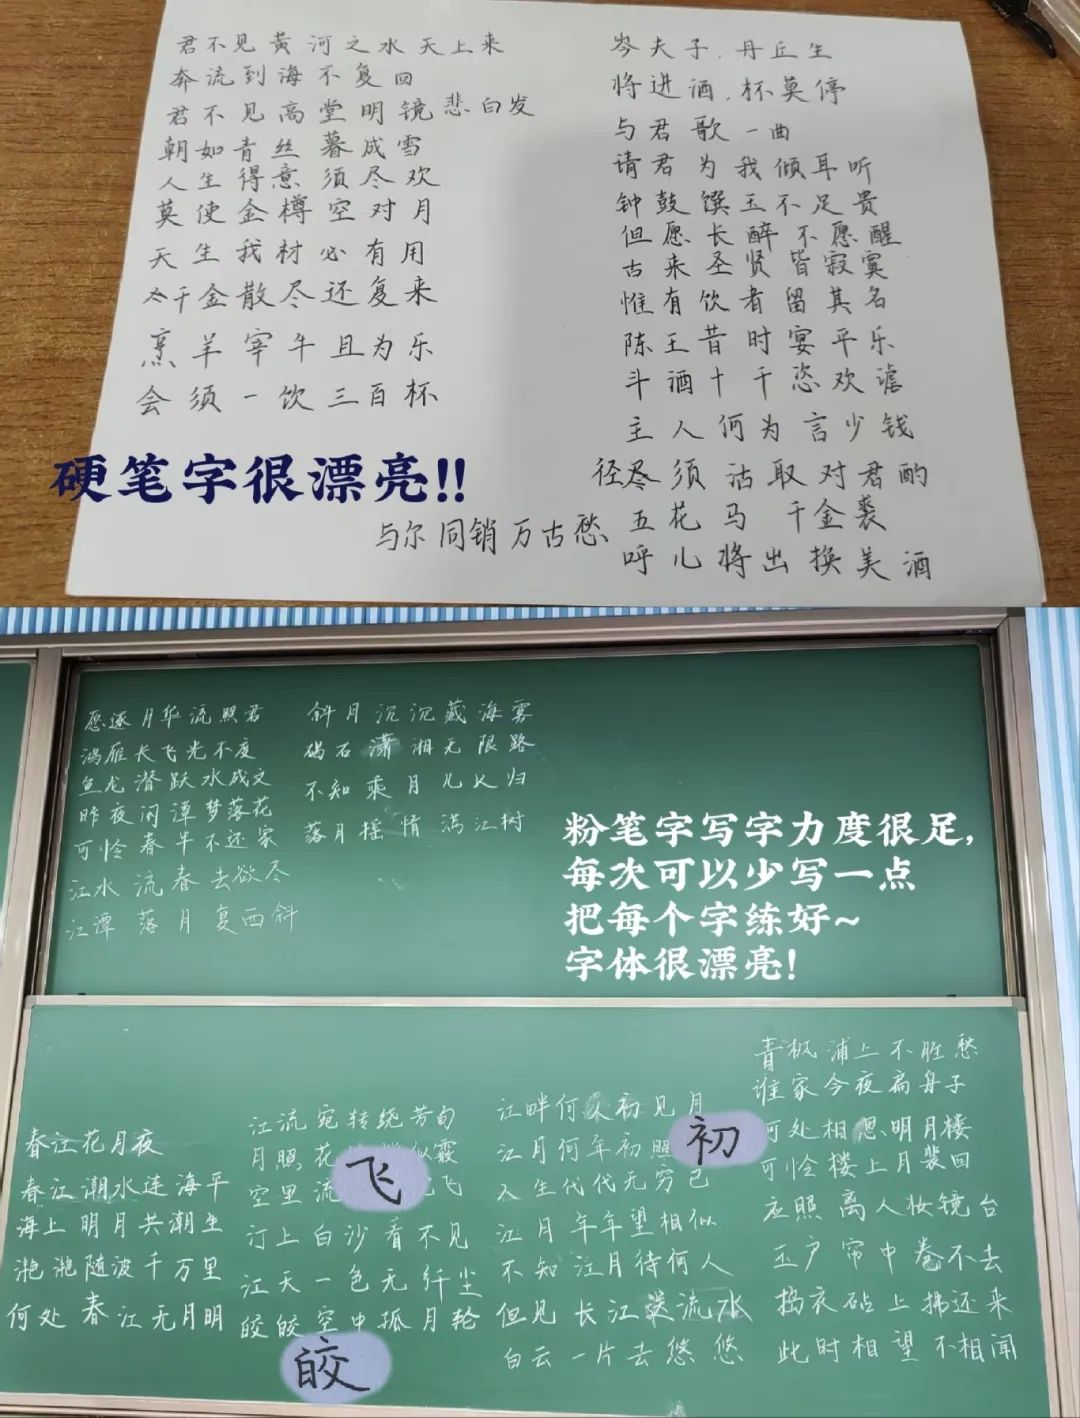 君不见黄河之水天上来
奔流到海不复回
君不见高堂明镜悲白发
朝如青丝暮成雪
人生得意须尽欢
莫使金樽空对月
天生我材必有用
千金散尽还复来
烹羊宰牛且为乐
会须一饮三百杯
岑夫子,丹丘生
将进酒,杯莫停
与君歌一曲
请君为我倾耳听
钟鼓馔玉不足贵
但愿长醉不愿醒
古来圣贤皆寂寞
惟有饮者留其名
陈王昔时宴平乐
斗酒十千恣欢谑
主人何为言少钱
径尽须沽取对君酌
五花马千金裘
呼儿将出换美酒
与尔同销万古愁
硬笔字很漂亮!!
愿逐月华流照君
鸿雁长飞光不度
鱼龙潜跃水成文
昨夜闲潭梦落花
可怜春半不还家
江水流春去欲尽
江潭落月复西斜
斜月沉沉藏海雾
碣石潇湘无限路
不知乘月几人归
落月摇情满江树
粉笔字写字力度很足,
每次可以少写一点
把每个字练好~
字体很漂亮!
春江花月夜
春江潮水连海平
海上明月共潮生
滟滟随波千万里
何处春江无月明
江流宛转绕芳甸
月照花似霰
空里流飞
汀上白沙看不见
江天一色无纤尘
皎皎空中孤月轮
飞
皎
江畔何人初见月
江月何年初照
人生代代无穷已
江月年年望相似
不知江月待何人
但见长江送流水
白云一片去悠悠
初
青枫浦上不胜愁
谁家今夜扁舟子
可处相思明月楼
可怜楼上月裴回
应照离人妆镜台
玉户帘中卷不去
捣衣砧上拂还来
此时相望不相闻